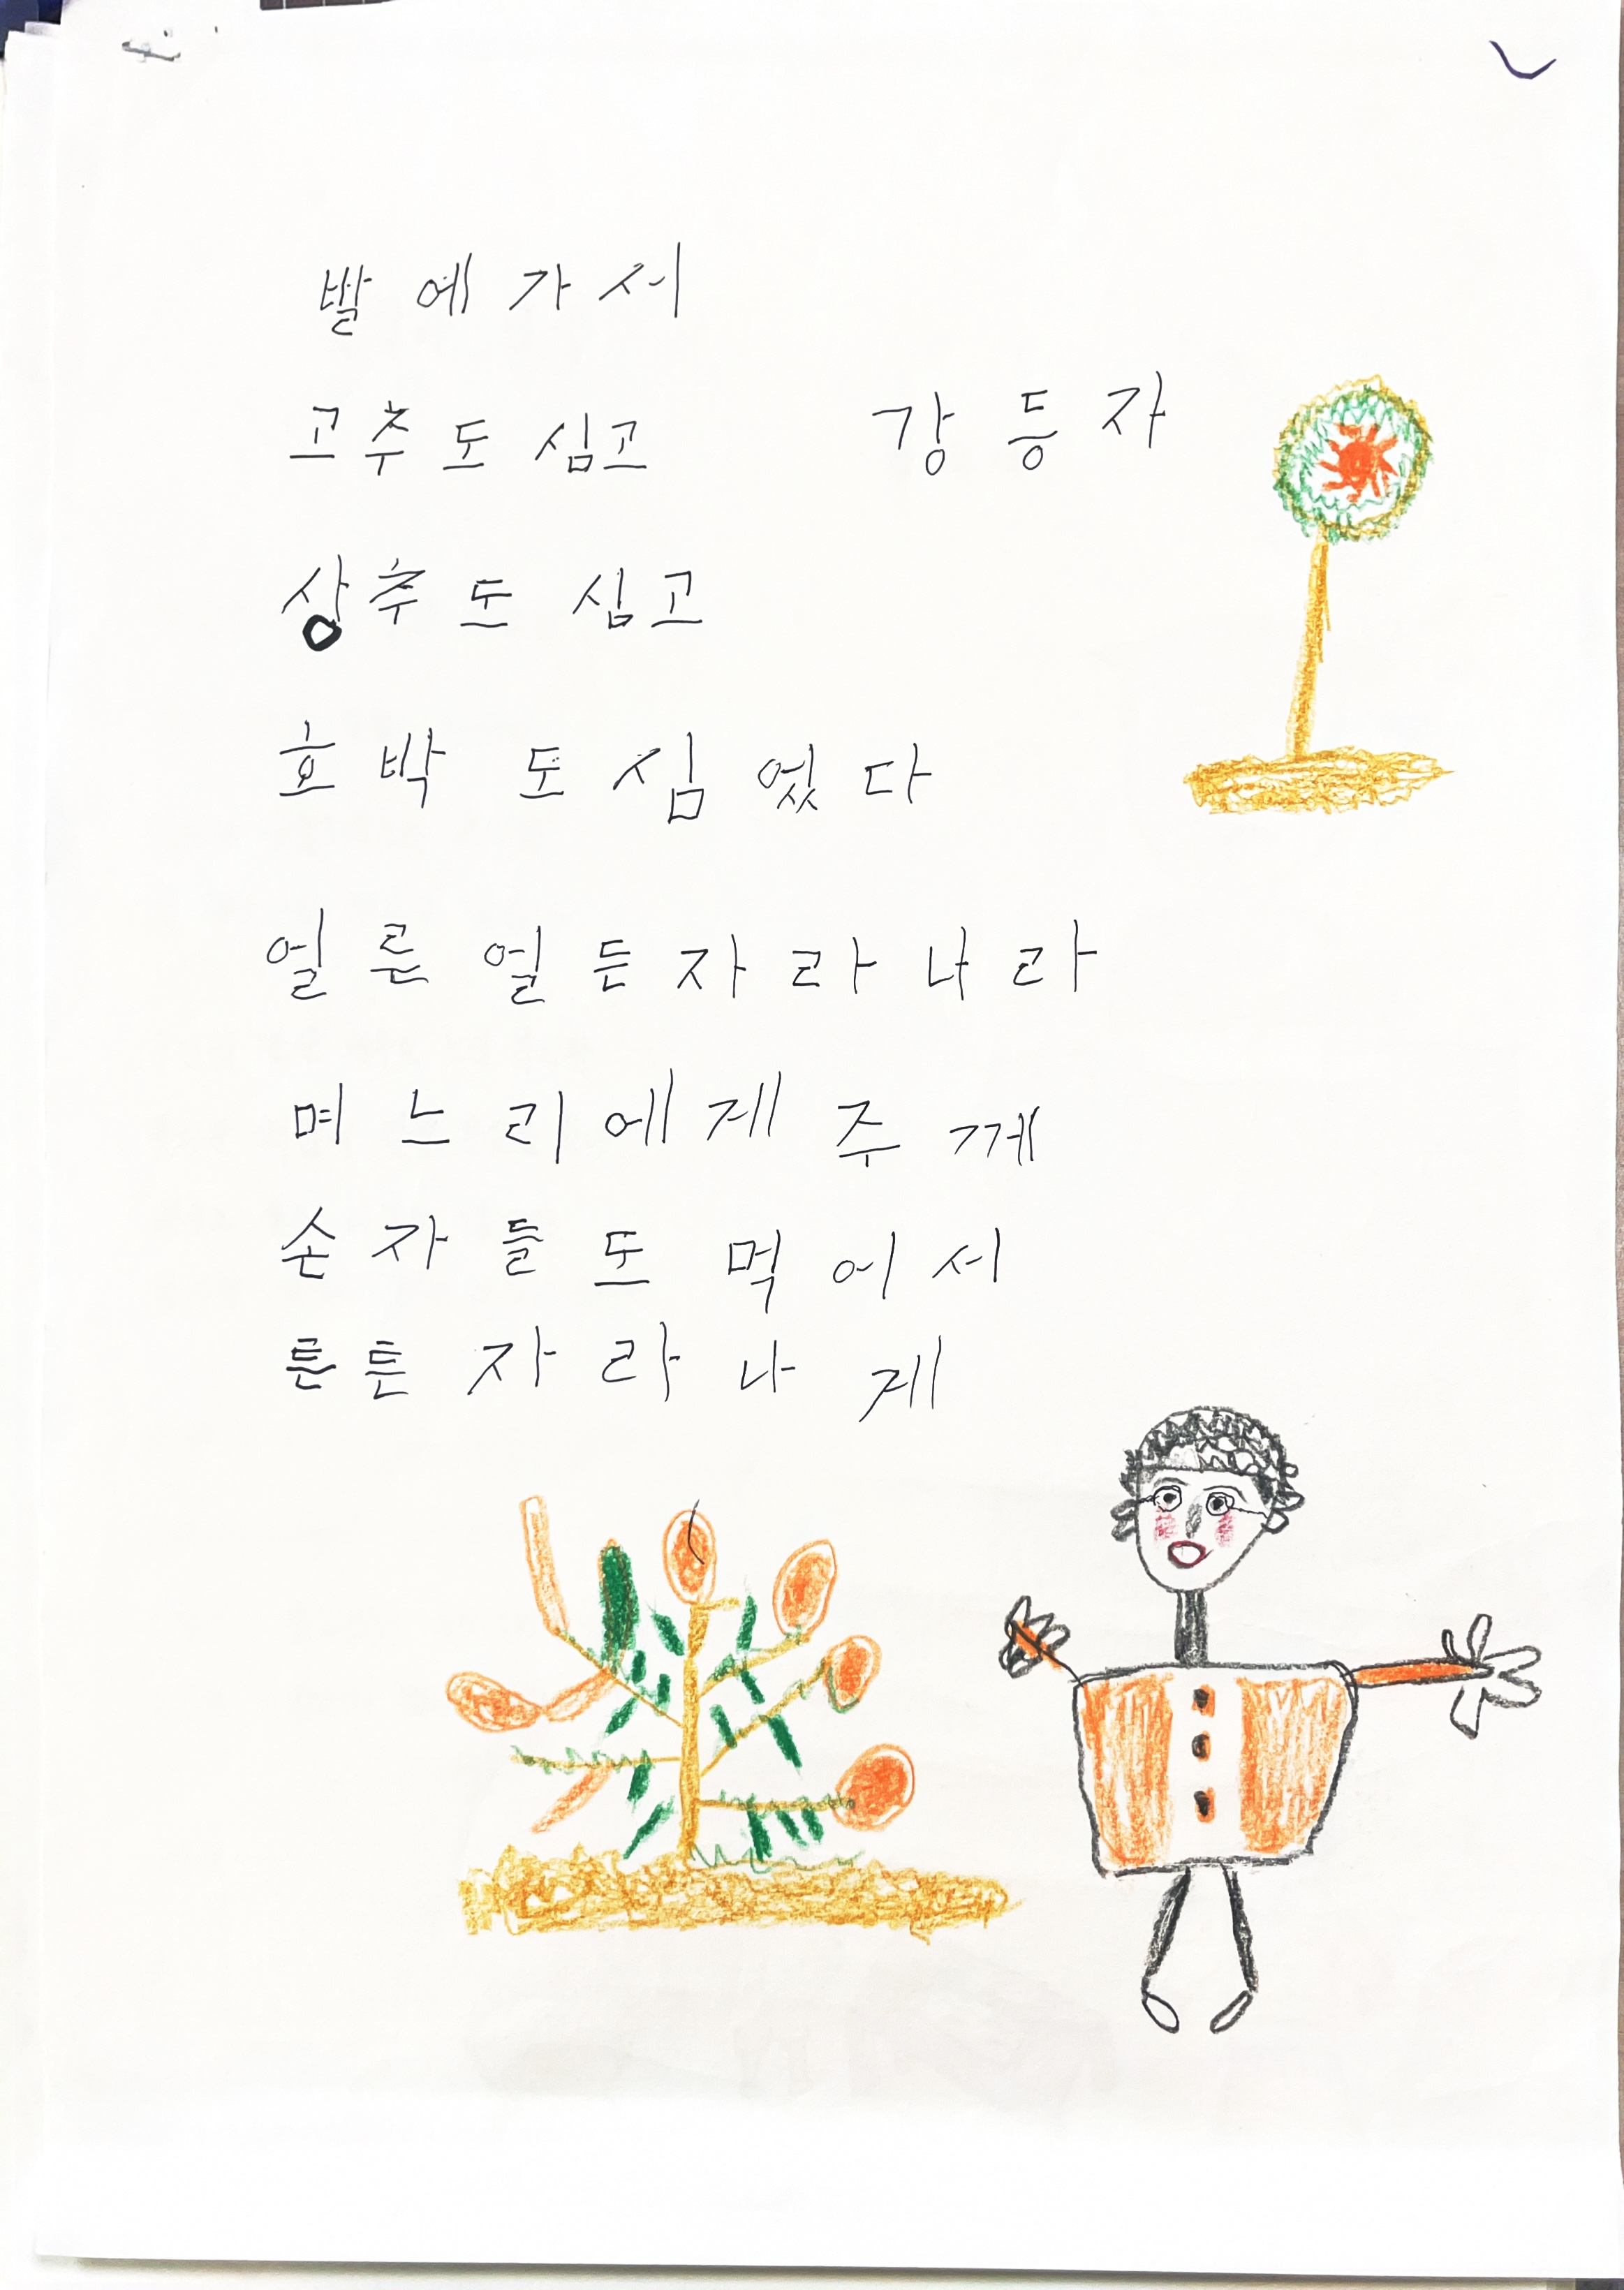 발에가서
고추도 심고
강등자
상추도 심고
호박도 심었다
얼른 얼든 자라나라
며느리에게 주께
손자들도 먹어서
튼튼 자라나게